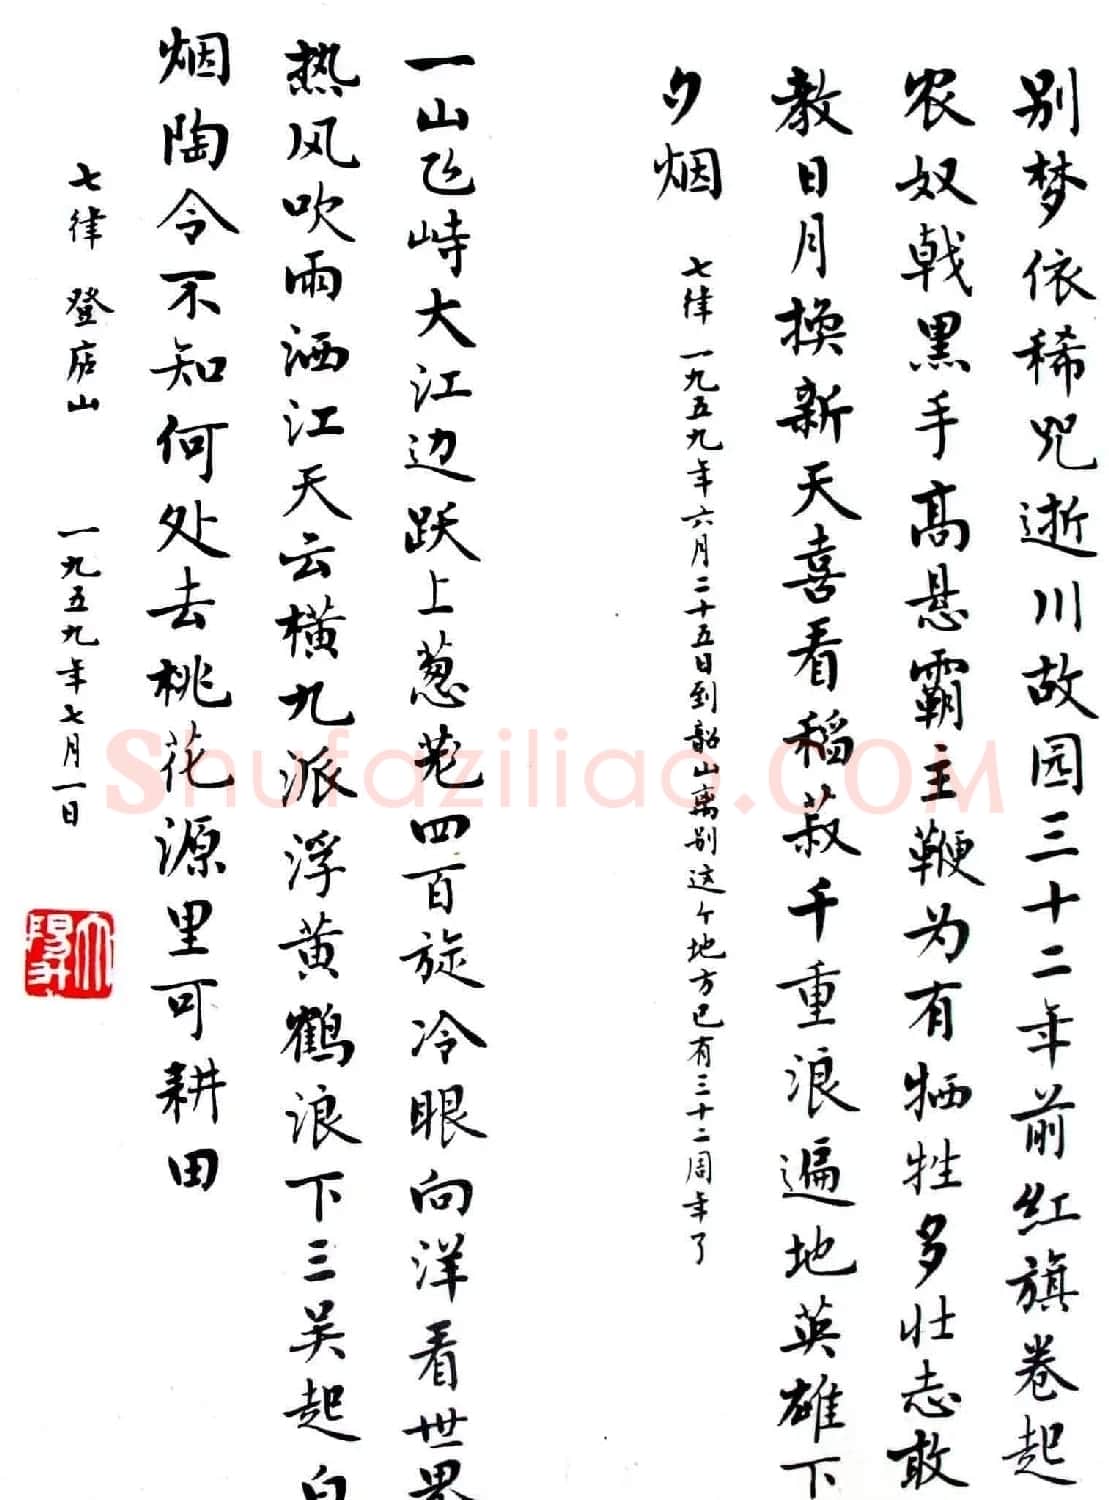 别梦依稀咒逝川故园三十二年前红旗卷起
农奴戟黑手高悬霸主鞭为有牺牲多壮志敢
教日月换新天喜看稻菽千重浪遍地英雄下
夕烟 七律 一九五九年六月二十五日到韶山离别这个地方已有三十二周年了
一山飞峙大江边跃上葱茏四百旋冷眼向洋看世界
热风吹雨洒江天云横九派浮黄鹤浪下三吴起白
烟陶令不知何处去桃花源里可耕田
七律 登庐山 一九五九年七月一日
Shufaziliao.COM